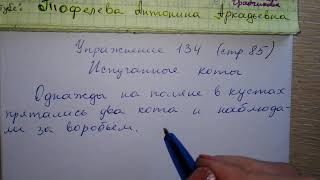 Тюфелева Антонина Аркадьевна
Упражнение 134 (стр. 85)
Испуганные коты
Однажды на поляне в кустах
прятались два кота и наблюда-
ли за воробьём.